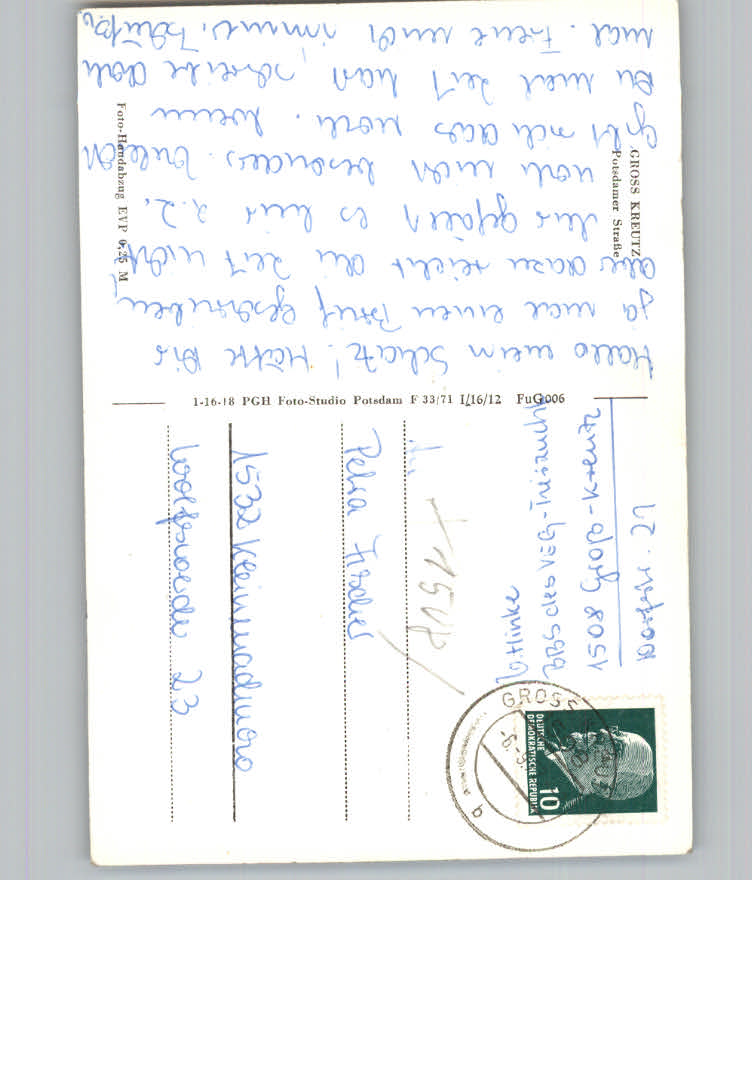 GROSS KREUTZ
Potsdamer Straße
Hallo mein Schatz! Hätte Dir
ja mal einen Brief geschrieben,
aber dazu reicht die Zeit nicht.
Uns gefällt es hier z.Z.
noch nicht besonders.
gibt sich das noch. Wenn
Du mal Zeit hast, schreibe doch
mal. Freue mich immer.
Foto-Handabzug EVP 0,25 M
1-16-18 PGH Foto-Studio Potsdam F 33/71 I/16/12 FuG 006
B. Hinke
BBS des VEG-Tierzucht
1508 Groß-Kreutz
Dorfstr. 21
An
Petra Fischer
1532 Kleinmachnow
Wolfswerder 23
GROSS KREUTZ
b
DEUTSCHE
DEMOKRATISCHE REPUBLIK
10